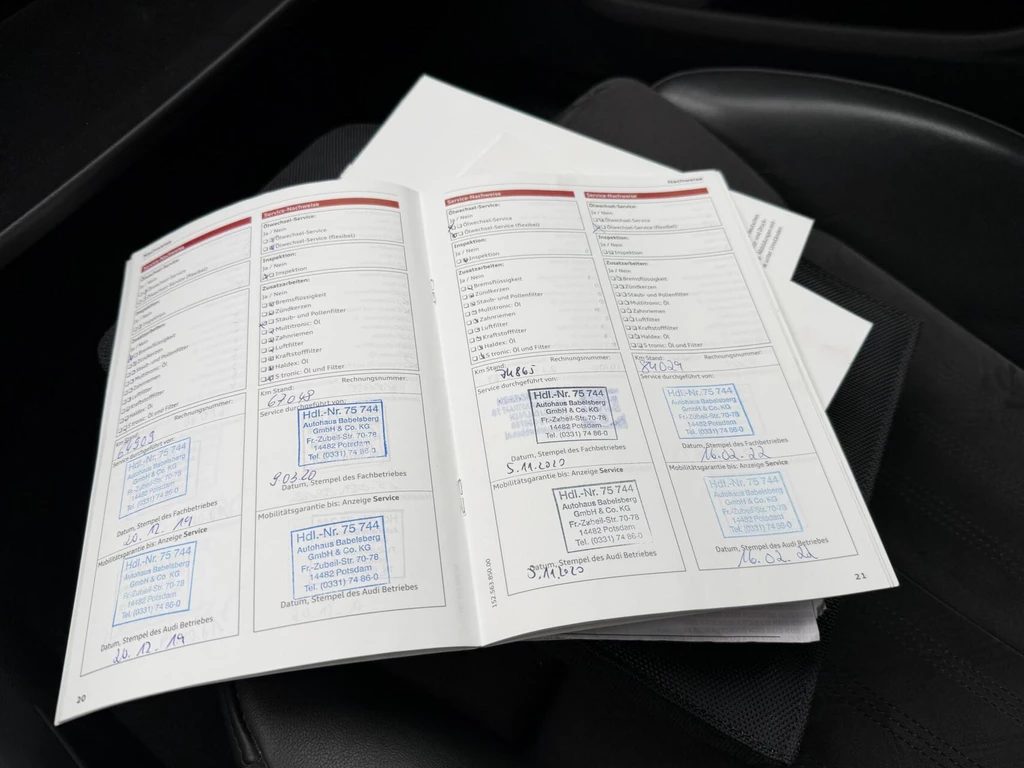 Nachweise
Service-Nachweise
Ölwechsel-Service:
Ja / Nein
Ölwechsel-Service
Ölwechsel-Service (flexibel)
Inspektion:
Ja / Nein
Inspektion
Zusatzarbeiten:
Ja / Nein
Bremsflüssigkeit
Zündkerzen
Staub- und Pollenfilter
Multitronic: Öl
Zahnriemen
Luftfilter
Kraftstofffilter
Haldex: Öl
Rechnungsnummer:
Km Stand:
Service durchgeführt von:
Hdl.-Nr. 75 744
Autohaus Babelsberg
GmbH & Co. KG
Fr.-Zubeil-Str. 70-78
14482 Potsdam
Tel. (0331) 74 86-0
Datum, Stempel des Fachbetriebes
20. 12. 19
Mobilitätsgarantie bis: Anzeige Service
Hdl.-Nr. 75 744
Autohaus Babelsberg
GmbH & Co. KG
Fr.-Zubeil-Str. 70-78
14482 Potsdam
Tel. (0331) 74 86-0
Datum, Stempel des Audi Betriebes
20. 12. 19
20
Service-Nachweise
Ölwechsel-Service:
Ja / Nein
Ölwechsel-Service
Ölwechsel-Service (flexibel)
Inspektion:
Ja / Nein
Inspektion
Zusatzarbeiten:
Ja / Nein
Bremsflüssigkeit
Zündkerzen
Staub- und Pollenfilter
Multitronic: Öl
Zahnriemen
Luftfilter
Kraftstofffilter
Haldex: Öl
S tronic: Öl und Filter
Km Stand: Rechnungsnummer:
67048
Service durchgeführt von:
Hdl.-Nr. 75 744
Autohaus Babelsberg
GmbH & Co. KG
Fr.-Zubeil-Str. 70-78
14482 Potsdam
Tel. (0331) 74 86-0
9.03.20
Datum, Stempel des Fachbetriebes
Mobilitätsgarantie bis: Anzeige Service
Hdl.-Nr. 75 744
Autohaus Babelsberg
GmbH & Co. KG
Fr.-Zubeil-Str. 70-78
14482 Potsdam
Tel. (0331) 74 86-0
Datum, Stempel des Audi Betriebes
Service-Nachweise
Ölwechsel-Service:
Ja / Nein
Ölwechsel-Service
Ölwechsel-Service (flexibel)
Inspektion:
Ja / Nein
Inspektion
Zusatzarbeiten:
Ja / Nein
Bremsflüssigkeit
Zündkerzen
Staub- und Pollenfilter
Multitronic: Öl
Zahnriemen
Luftfilter
Kraftstofffilter
Haldex: Öl
S tronic: Öl und Filter
Km Stand: Rechnungsnummer:
74865
Service durchgeführt von:
Hdl.-Nr. 75 744
Autohaus Babelsberg
GmbH & Co. KG
Fr.-Zubeil-Str. 70-78
14482 Potsdam
Tel. (0331) 74 86-0
Datum, Stempel des Fachbetriebes
5.11.2020
Mobilitätsgarantie bis: Anzeige Service
Hdl.-Nr. 75 744
Autohaus Babelsberg
GmbH & Co. KG
Fr.-Zubeil-Str. 70-78
14482 Potsdam
Tel. (0331) 74 86-0
Datum, Stempel des Audi Betriebes
5.11.2020
152.563.890.00
Nachweise
Service-Nachweise
Ölwechsel-Service:
Ja / Nein
Ölwechsel-Service
Ölwechsel-Service (flexibel)
Inspektion:
Ja / Nein
Inspektion
Zusatzarbeiten:
Ja / Nein
Bremsflüssigkeit
Zündkerzen
Staub- und Pollenfilter
Multitronic: Öl
Zahnriemen
Luftfilter
Kraftstofffilter
Haldex: Öl
S tronic: Öl und Filter
Km Stand: Rechnungsnummer:
84029
Service durchgeführt von:
Hdl.-Nr. 75 744
Autohaus Babelsberg
GmbH & Co. KG
Fr.-Zubeil-Str. 70-78
14482 Potsdam
Tel. (0331) 74 86-0
Datum, Stempel des Fachbetriebes
16.02.22
Mobilitätsgarantie bis: Anzeige Service
Hdl.-Nr. 75 744
Autohaus Babelsberg
GmbH & Co. KG
Fr.-Zubeil-Str. 70-78
14482 Potsdam
Tel. (0331) 74 86-0
Datum, Stempel des Audi Betriebes
16.02.22
21